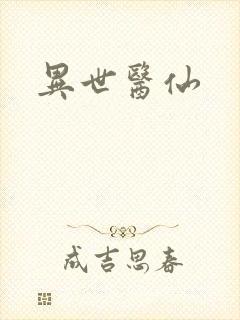 異世醫仙
成吉思春